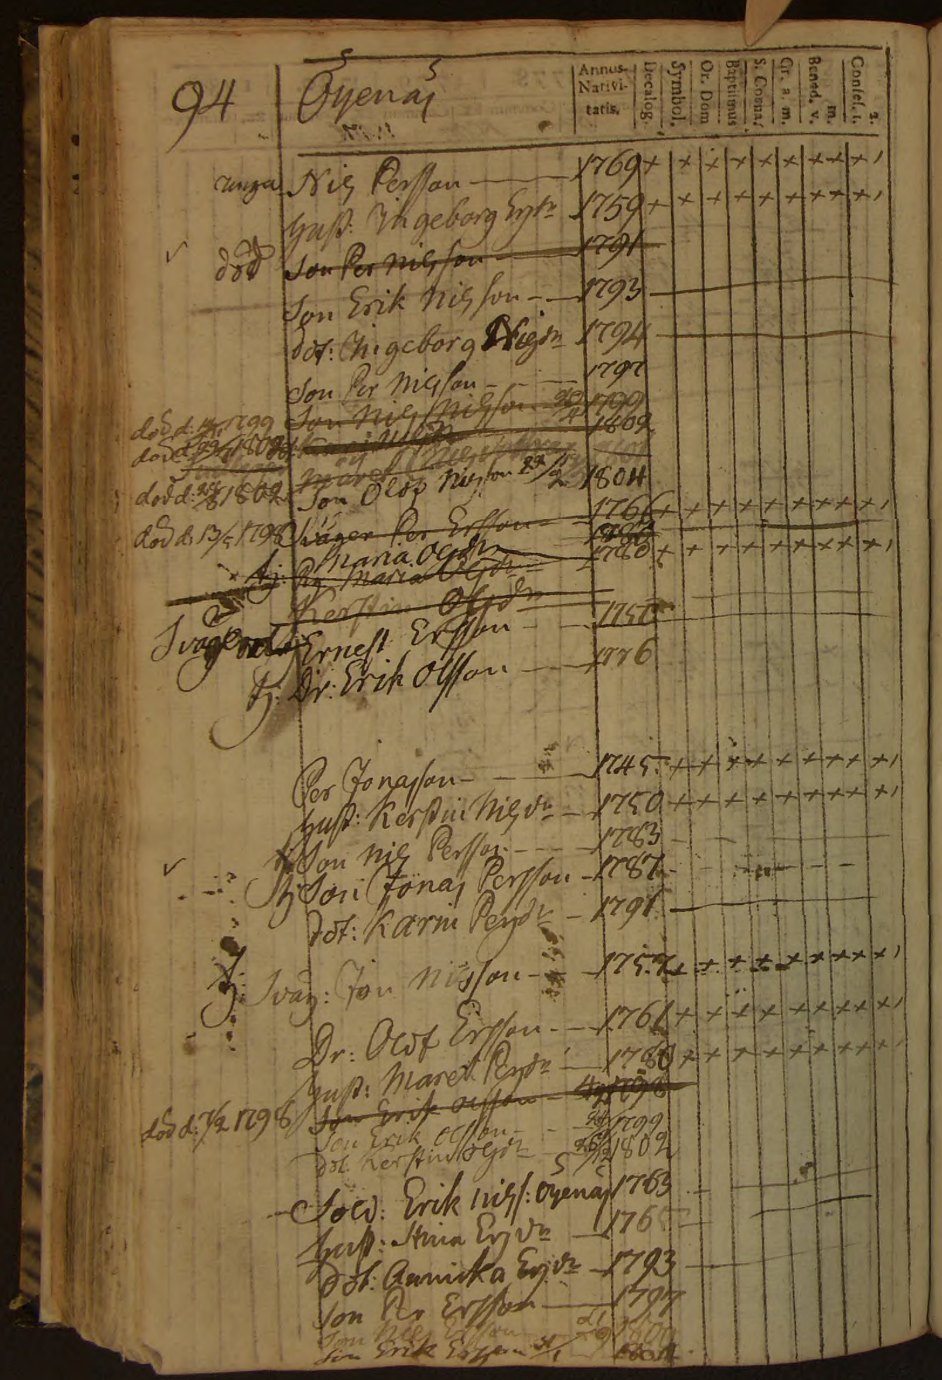 94 Öyenäs
Annus Nativitatis. Decalog. Symbol. Or. Dom Baptismus S. Coena. Gr. a. m. Bened. v. m. Confes. 1. 2.
Nils Persson 1769 + + + + + + + + +
Hust: Ingeborg Ersdr 1759 + + + + + + + + +
död Son Per Nilsson 1791
Son Erik Nilsson 1793
Dot: Ingeborg Nilsdr 1794
Son Per Nilsson 1797
död d. 1799 Son Nils Nilsson 1799
död d. 1802 1802
död d: 1802
Son Olof Nilsson 1804
död d: 13/5 1798 Svåger Per Ersson 1766 + + + + + + + + +
Maria Olsdr
Pig. Maria Olsdr 1780 + + + + + + + + +
Kerstin Olsdr
Svåger Ernest Ersson 1750
tj: Dr: Erik Olsson 1776
Per Jonasson 1745 + + + + + + + + +
Hust: Kerstin Nilsdr 1750 + + + + + + + + +
Son Nils Persson 1783
tj: Son Jonas Persson 1787
Dot: Karin Persdr 1791
tj: Svåg: Jon Nilsson 1757 + + + + + + + + +
Dr: Olof Ersson 1761 + + + + + + + + +
Hust: Maret Persdr 1780 + + + + + + + + +
död d: 7/2 1798 Son Erik Olsson 1798
Son Erik Olsson 1799
Dot. Kerstin Olsdr 1802
Sold: Erik Nilss: Öyenäs 1763
Hust: Stina Ersdr
Dot: Annika Ersdr 1793
Son Per Ersson 1797
Son Nils Ersson
Son Erik Ersson